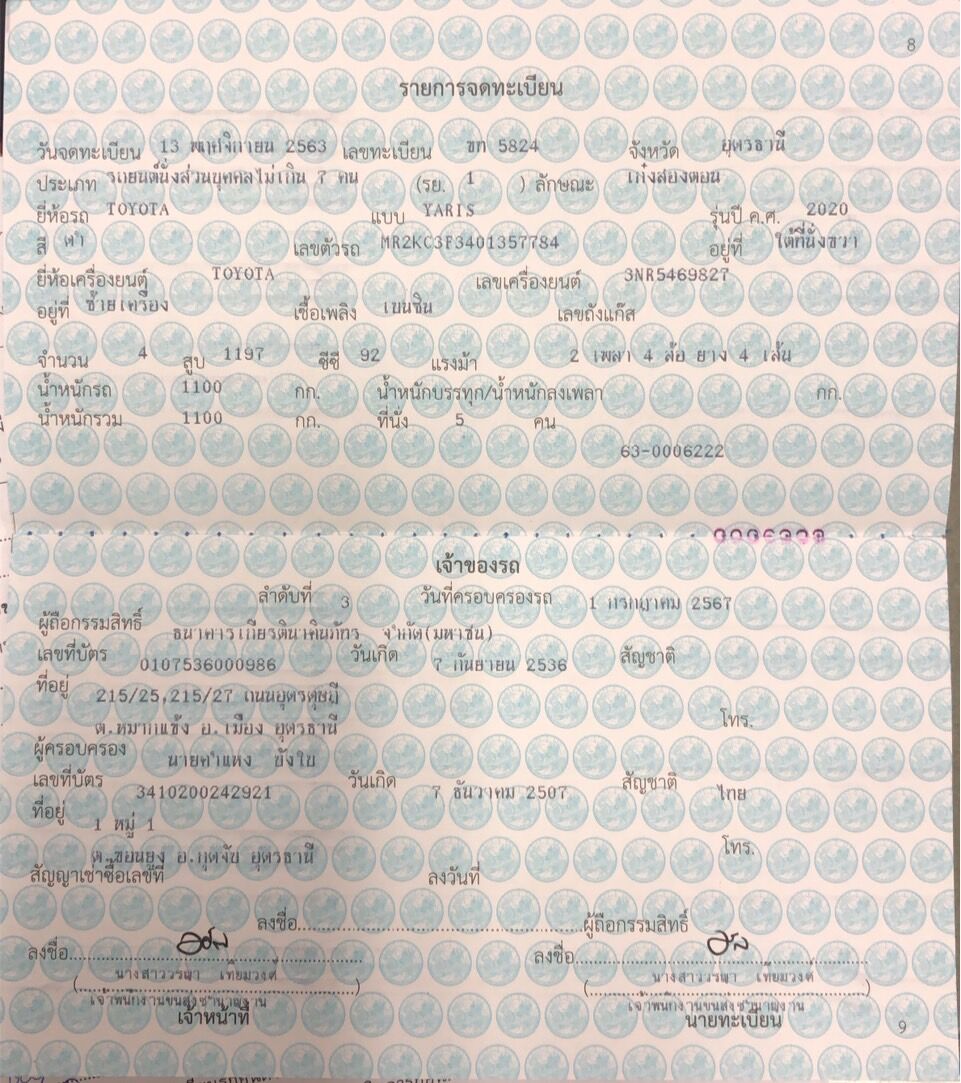 8
รายการจดทะเบียน
วันจดทะเบียน 13 พฤศจิกายน 2563 เลขทะเบียน ขท 5824 จังหวัด อุดรธานี
ประเภท รถยนต์นั่งส่วนบุคคลไม่เกิน 7 คน (รย. 1 ) ลักษณะ เก๋งสองตอน
ยี่ห้อรถ TOYOTA แบบ YARIS รุ่นปี ค.ศ. 2020
สี ดำ เลขตัวรถ MR2KC3F3401357784 อยู่ที่ ใต้ที่นั่งขวา
ยี่ห้อเครื่องยนต์ TOYOTA เลขเครื่องยนต์ 3NR5469827
อยู่ที่ ซ้ายเครื่อง เชื้อเพลิง เบนซิน เลขถังแก๊ส
จำนวน 4 สูบ 1197 ซีซี 92 แรงม้า 2 เพลา 4 ล้อ ยาง 4 เส้น
น้ำหนักรถ 1100 กก. น้ำหนักบรรทุก/น้ำหนักลงเพลา กก.
น้ำหนักรวม 1100 กก. ที่นั่ง 5 คน
63-0006222
เจ้าของรถ
ลำดับที่ 3 วันที่ครอบครองรถ 1 กรกฎาคม 2567
ผู้ถือกรรมสิทธิ์ ธนาคารเกียรตินาคินภัทร จำกัด(มหาชน)
เลขที่บัตร 0107536000986 วันเกิด 7 กันยายน 2536 สัญชาติ
ที่อยู่ 215/25,215/27 ถนนอุดรดุษฎี
ต.หมากแข้ง อ.เมือง อุดรธานี โทร.
ผู้ครอบครอง นายคำแหง
เลขที่บัตร 3410200242921 วันเกิด 7 ธันวาคม 2507 สัญชาติ ไทย
ที่อยู่ 1 หมู่ 1
ต.ขอนยูง อ.กุดจับ อุดรธานี โทร.
สัญญาเช่าซื้อเลขที่ ลงวันที่
ลงชื่อ ผู้ถือกรรมสิทธิ์
ลงชื่อ ลงชื่อ
นางสาววรษา เทียมวงศ์ นางสาววรษา เทียมวงศ์
เจ้าพนักงานขนส่งชำนาญงาน เจ้าพนักงานขนส่งชำนาญงาน
เจ้าหน้าที่ นายทะเบียน
9